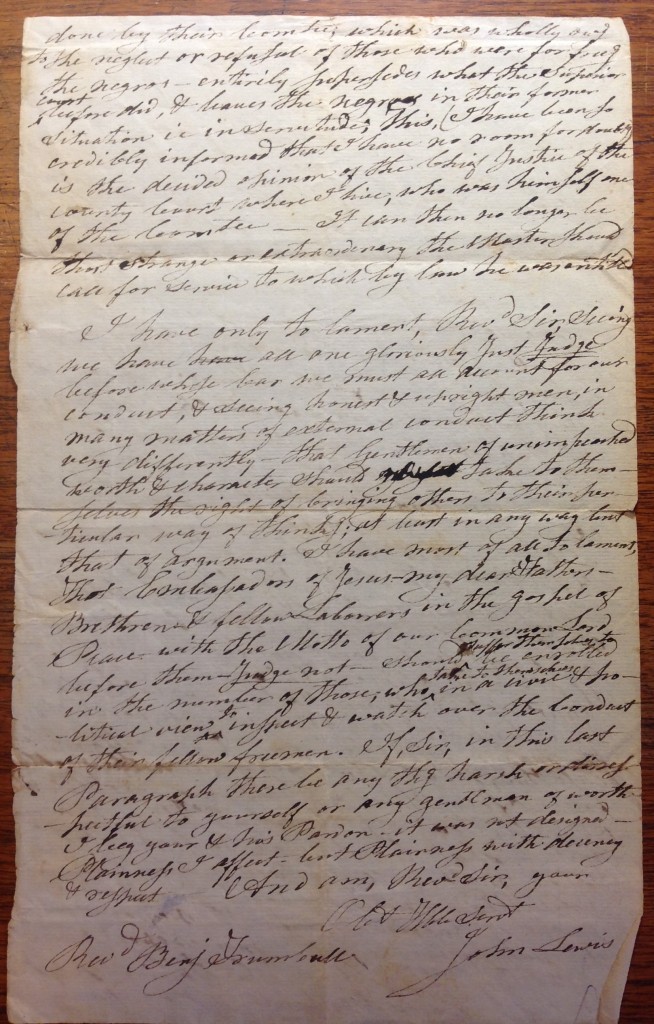 done by their Comtee, which was wholly owg
to the neglect or refusal of those who were for freeg
the negros — entirely supersedes what the Superior
Court before did, & leaves the negros in their former
situation ie in servitude; This, (I have been so
credibly informed that I have no room for doubt)
is the decided opinion of the Chief Justice of the
County Court where I live, who was himself one
of the Comtee — It can then no longer be
thot strange or extraordinary the Master should
call for service to which by law he was entitled
I have only to lament, Revd Sir, Seeing
we have have all one gloriously Just Judge
before whose bar we must all account for our
conduct, & seeing honest & upright men, in
many matters of external conduct think
very differently — that Gentlemen of unimpeached
worth & character should take to them-
selves the right of bringing others to their per-
ticular way of thinkg, at least in any way but
that of argument. I have most of all to lament,
That Embassadors of Jesus — my dear Fathers —
Brethren & fellow Labourers in the gospel of
Peace with the Motto of our Common Lord
before them — Judge not — should suffer themselves to be enrolled
in the number of those, who take to themselves in a civil & po-
litical view to inspect & watch over the conduct
of their fellow freemen. If, Sir, in this last
Paragraph there be any thg harsh or disres-
pectful to yourself or any gentleman of worth
I beg your & his Pardon — it was not designed —
Plainness I affect — but Plainness with decency
& respect And am, Revd Sir, your
Obt Hble Servt
John Lewis
Revd Benj Trumbull